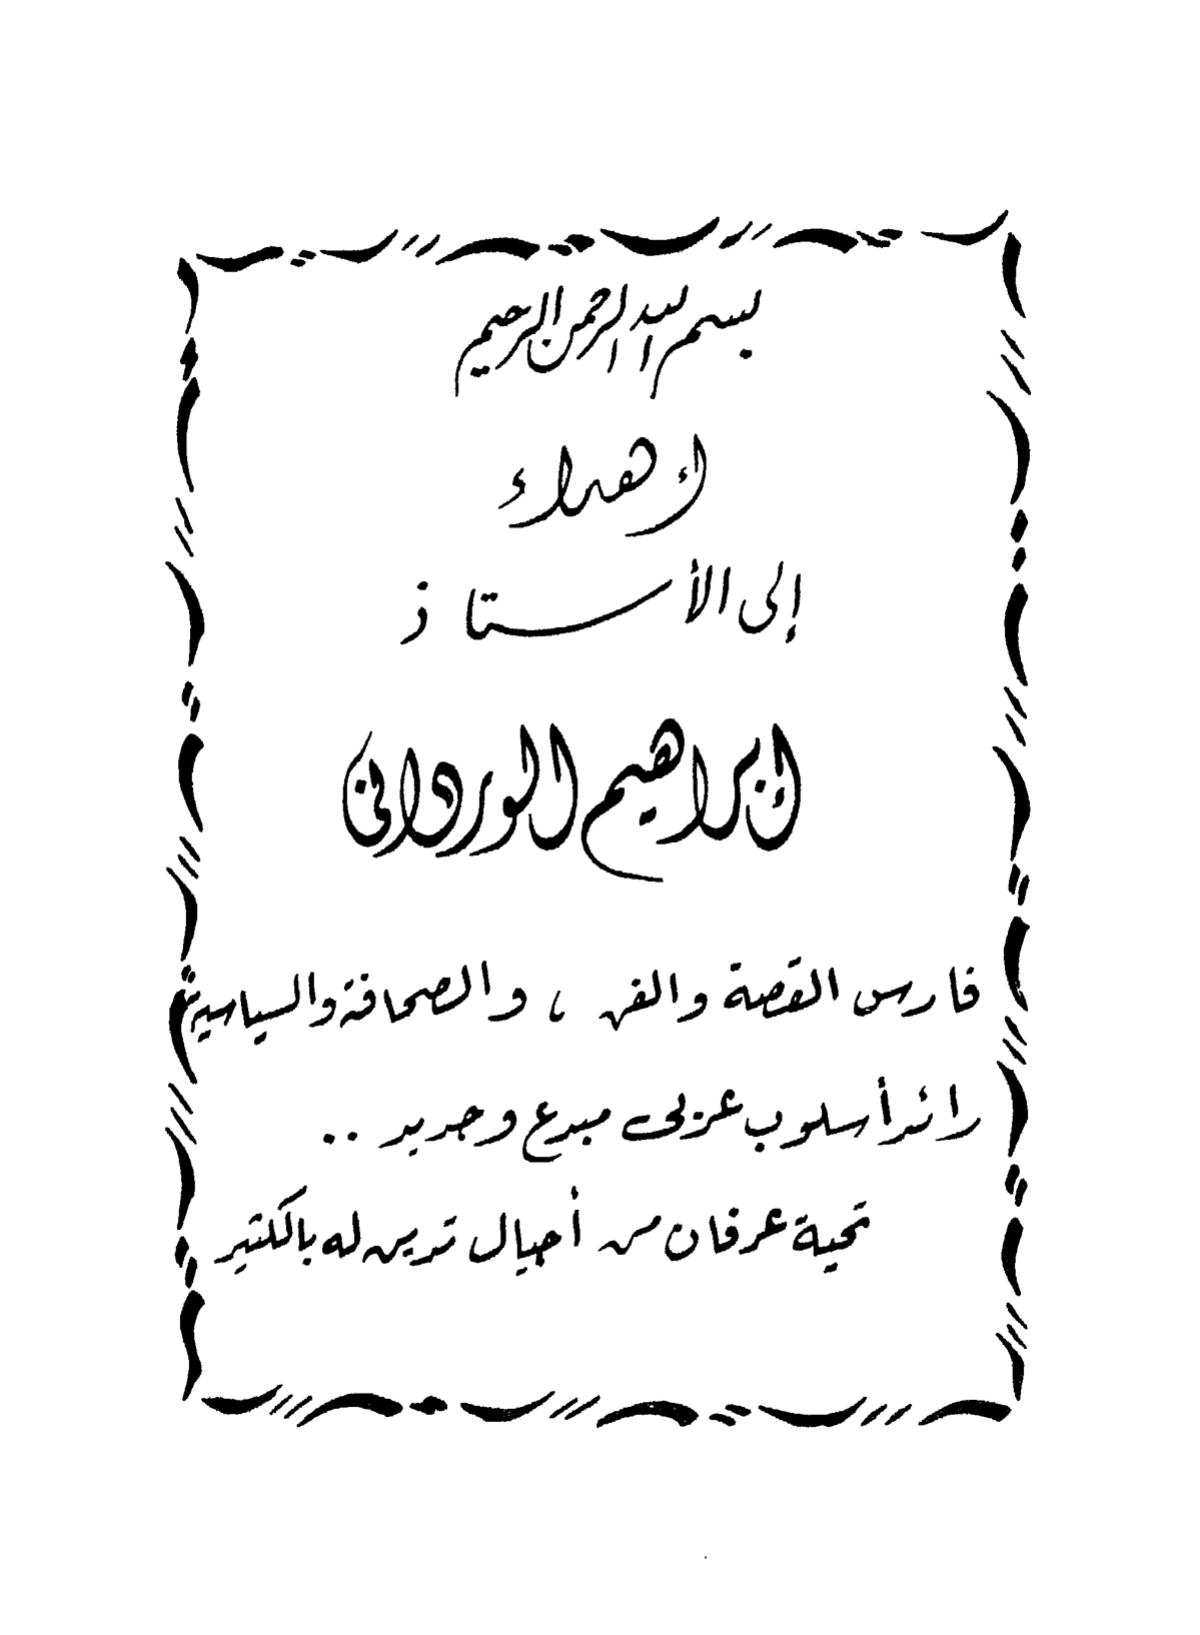 بسم الله الرحمن الرحيم
إهداء
إلى الأستاذ
إبراهيم الورداني
فارس القصة والفن ، والصحافة والسياسة
رائد أسلوب عربى مبدع وجديد ..
تحية عرفان من أجيال تدين له بالكثير